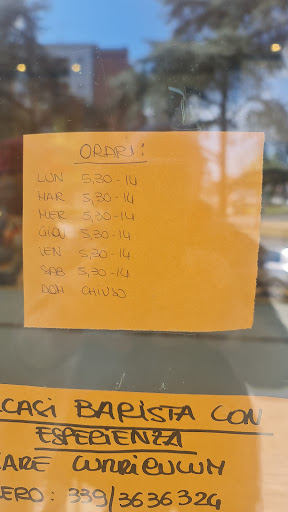 ORARI:
LUN 5,30-14
MAR 5,30-14
MER 5,30-14
GIOV 5,30-14
VEN 5,30-14
SAB 5,30-14
DOM CHIUSO
CACI BARISTA CON
ESPERIENZA
ARE CURRICULUM
ERO: 339/3636324